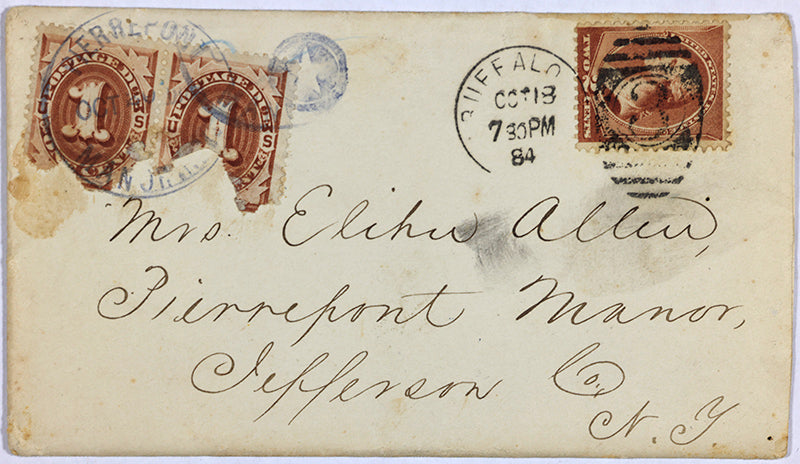 PIERREPONT
OCT
MANOR
POSTAGE DUE
1
POSTAGE DUE
1
BUFFALO
OCT 18
7 30PM
84
TWO CENTS
Mrs. Elihu Allen,
Pierrepont Manor,
Jefferson Co,
N. Y